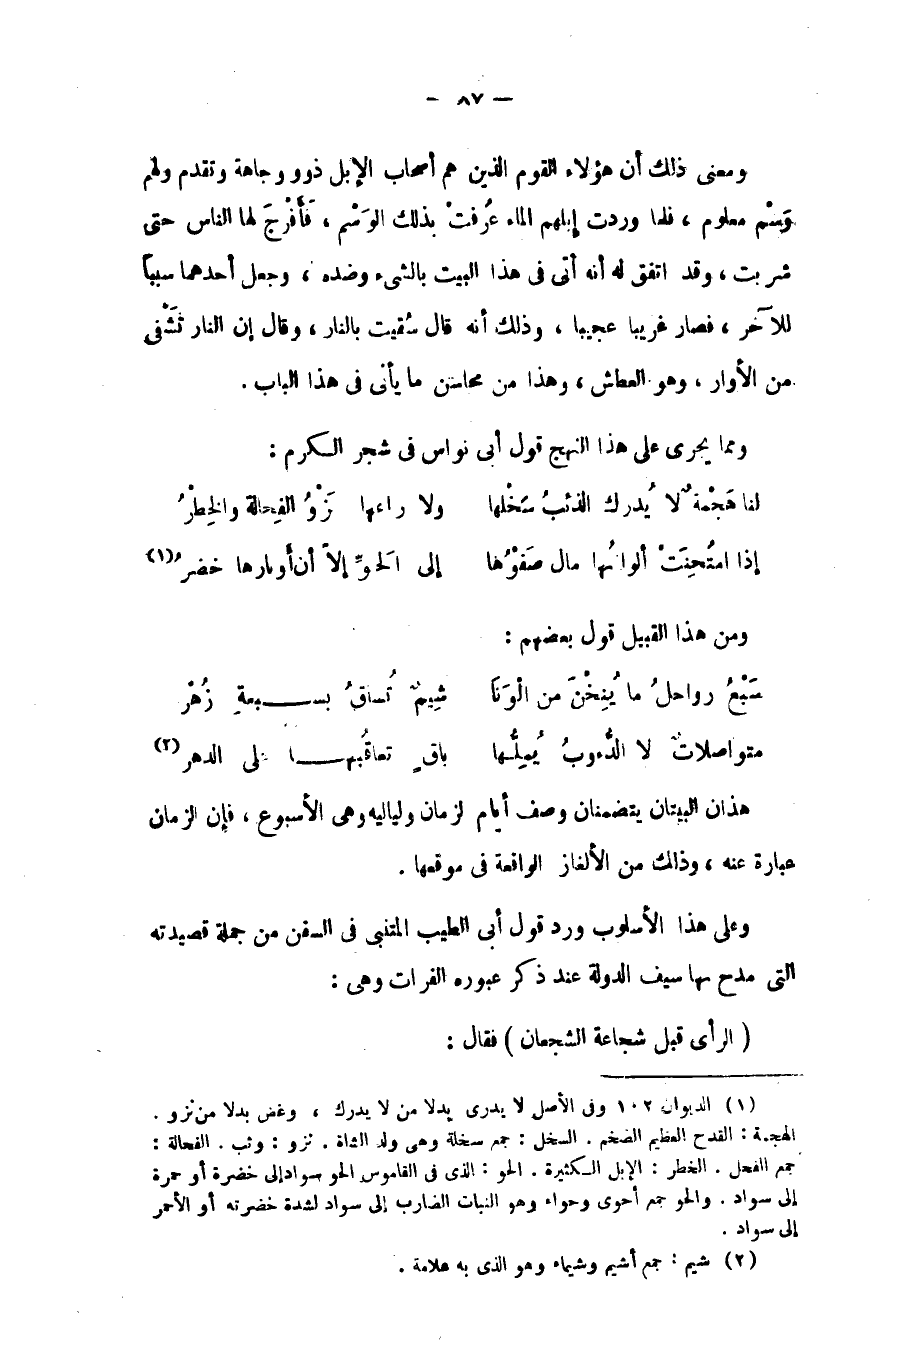 — ٨٧ —
ومعنى ذلك أن هؤلاء القوم الذين هم أصحاب الإبل ذوو وجاهة وتقدم ولهم
وَسْم معلوم ، فلما وردت إبلهم الماء عُرفتْ بذلك الوَسْم ، فَأَفْرجَ لها الناس حتى
شربت ، وقد اتفق له أنه أتى فى هذا البيت بالشىء وضده ، وجعل أحدهما سبباً
للآخر ، فصار غريبا عجيبا ، وذلك أنه قال سُقيت بالنار ، وقال إن النار تَشْفى
من الأوار ، وهو العطاش ، وهذا من محاسن ما يأتى فى هذا الباب .
ومما يجرى على هذا النهج قول أبى نواس فى شجر الكرم :
لنا هَجْمةٌ لا يُدرك الذئبُ سَخْلها ولا راعها نَزْوُ الفِحالة والخِطْرُ
إذا امتُحِنَتْ ألوانُها مال صَفْوُها إلى الَحوِّ إلاّ أن أوبارها خضرُ(١)
ومن هذا القبيل قول بعضهم :
سَبْعُ رواحلُ ما يُنِخْنَ من الْوَنَا شِيمٌ تُساقُ بسبعةِ زُهْرِ
متواصلاتٌ لا الدُّءوبُ يُمِلُّها باقٍ تعاقُبها على الدهر(٢)
هذان البيتان يتضمنان وصف أيام الزمان ولياليه وهى الأسبوع ، فإن الزمان
عبارة عنه ، وذلك من الألغاز الواقعة فى موقعها .
وعلى هذا الأسلوب ورد قول أبى الطيب المتنبى فى السفن من جملة قصيدته
التى مدح بها سيف الدولة عند ذكر عبوره الفرات وهى :
( الرأى قبل شجاعة الشجعان ) فقال :
(١) الديوان ١٠٢ وفى الأصل لا يدرى بدلا من لا يدرك ، وغض بدلا من نزو .
الهجمة : القدح العظيم الضخم . السخل : جمع سخلة وهى ولد الشاة . نزو : وثب . الفحالة :
جمع الفحل . الخطر : الإبل الكثيرة . الحو : الذى فى القاموس الحو سواد إلى خضرة أو حمرة
إلى سواد . والحو جمع أحوى وحواء وهو النبات الضارب إلى سواد لشدة خضرته أو الأحمر
إلى سواد .
(٢) شيم : جمع أشيم وشيماء وهو الذى به علامة .